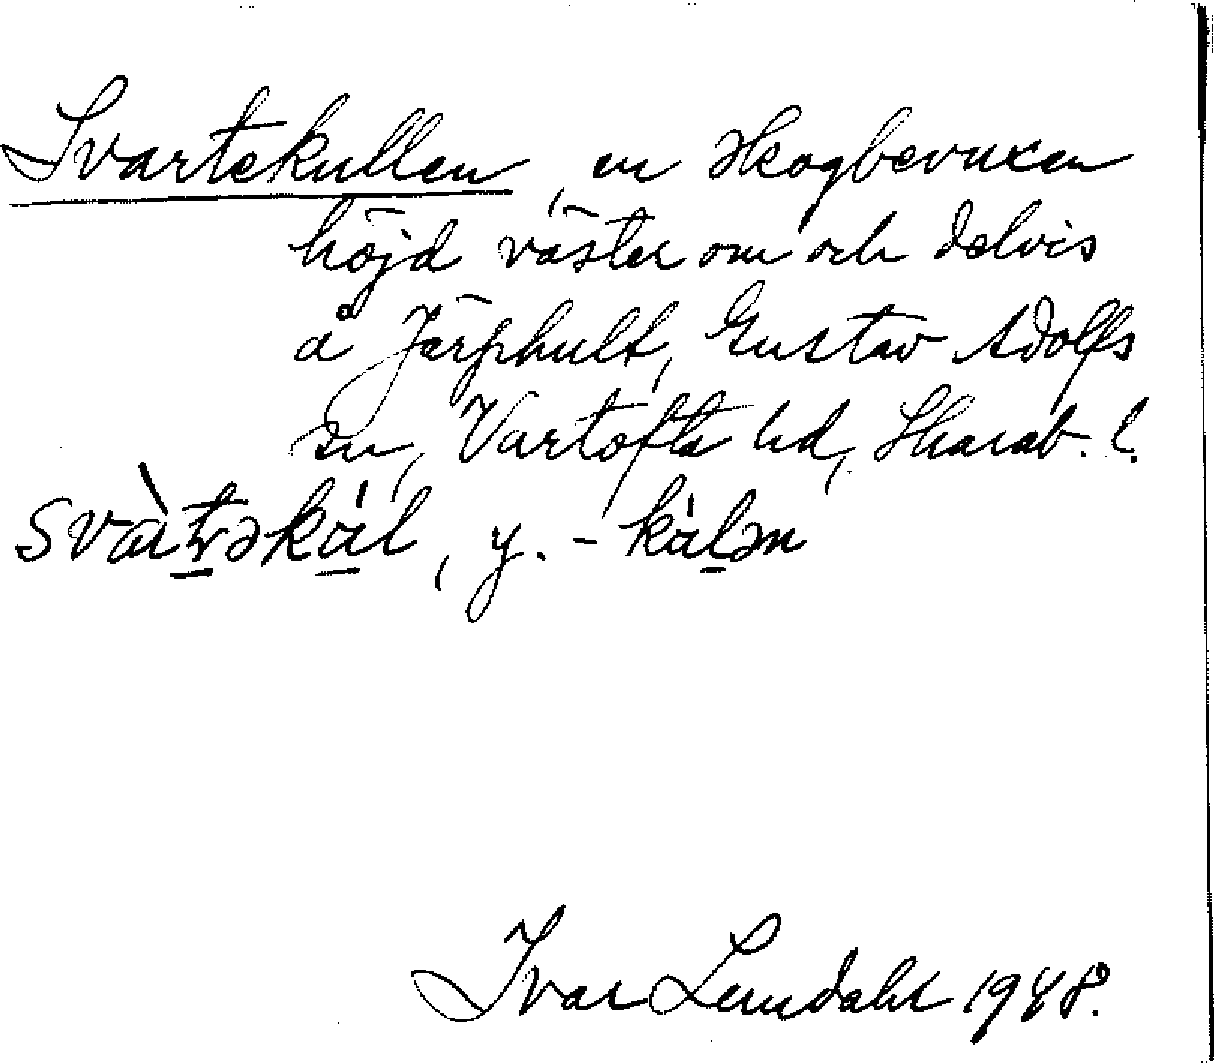 Svartekullen, en skogbevuxen
höjd väster om och delvis
å Järphult, Gustav Adolfs
sn, Vartofta hd, Skarab. l.
svàtəkäl, y. -kälən
Ivar Lundahl 1948.